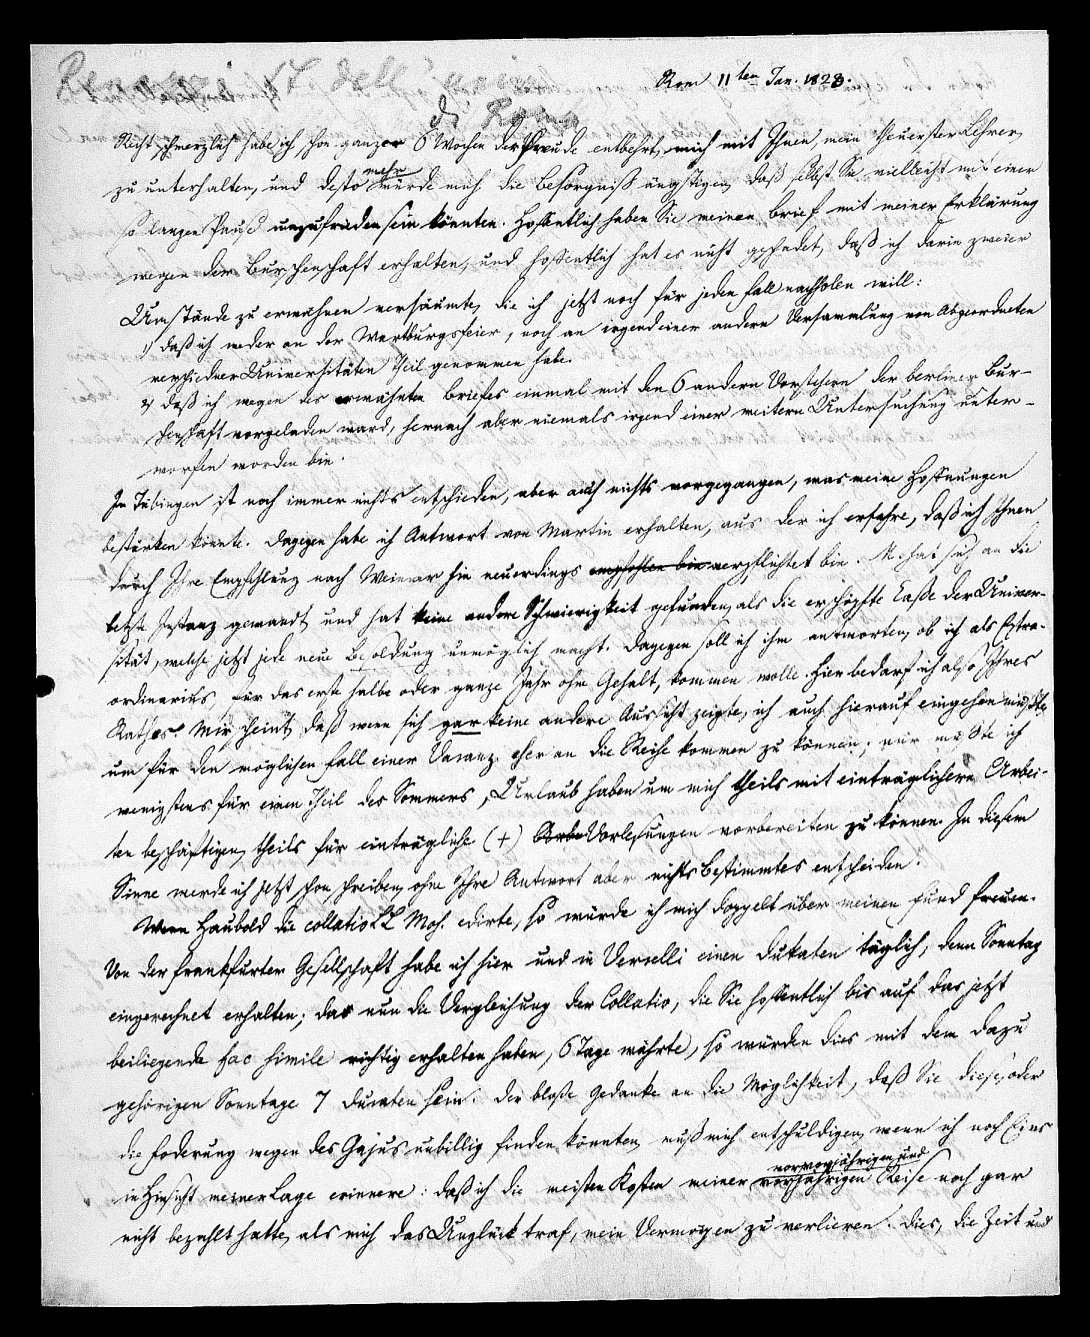 Renazzi St. dell' univ.
di Roma
Rom 11ten Jan. 1823.
Recht schmerzlich habe ich schon ganzer 6 Wochen der Freude entbehrt, mich mit Ihnen, mein theuerster Lehrer,
zu unterhalten, und desto mehr würde mich die Besorgniß ängstigen, daß selbst Sie vielleicht mit einer
so langen Pause unzufrieden sein könnten. Hoffentlich haben Sie meinen Brief mit meiner Erklärung
wegen der Burschenschaft erhalten, und hoffentlich hat es nicht geschadet, daß ich darin zweier
Umstände zu erwähnen versäumte, die ich jetzt noch für jeden Fall nachholen will:
1) daß ich weder an der Wartburgsfeier, noch an irgend einer andern Versammlung von Abgeordneten
verschiedner Universitäten Theil genommen habe.
2) daß ich wegen des erwähnten Briefes einmal mit den 6 andern Vorstehern der berliner Bur-
schenschaft vorgeladen ward, hernach aber niemals irgend einer weitern Untersuchung unter-
worfen worden bin.
In Tübingen ist noch immer nichts entschieden, aber auch nichts vorgegangen, was meine Hoffnungen
bestärken könnte. Dagegen habe ich Antwort von Martin erhalten, aus der ich erfahre, daß ich Ihnen
durch Ihre Empfehlung nach Weimar hin neuerdings empfohlen bin verpflichtet bin. M. hat sich an die
letzte Instanz gewandt und hat keine andere Schwierigkeit gefunden, als die erschöpfte Casse der Univer-
sität, welche jetzt jede neue Besoldung unmöglich macht. Dagegen soll ich ihm antworten, ob ich als Extra-
ordinarius, für das erste halbe oder ganze Jahr ohne Gehalt, kommen wolle. Hier bedarf ich also Ihres
Rathes. Mir scheint, daß wenn sich gar keine andere Aussicht zeigte, ich auch hierauf eingehen müßte,
um für den möglichen Fall einer Vacanz eher an die Reihe kommen zu können; nur müßte ich
wenigstens für einen Theil des Sommers, Urlaub haben um mich theils mit einträglichern Arbei-
ten beschäftigen, theils für einträgliche (+) Vorlesungen vorbereiten zu können. In diesem
Sinne werde ich jetzt schon schreiben, ohne Ihre Antwort aber nichts Bestimmtes entscheiden.
Wenn Haubold die collatio LL Mos. edirte, so würde ich mich doppelt über meinen Fund freuen.
Von der frankfurter Gesellschaft habe ich hier und in Vercelli einen Dukaten täglich, denn Sonntag
eingerechnet erhalten; das nun die Vergleichung der Collatio, die Sie hoffentlich bis auf das jetzt
beiliegende fac simile richtig erhalten haben, 6 Tage währte, so würden dies mit dem dazu
gehörigen Sonntage 7 Ducaten sein. Der bloße Gedanke an die Möglichkeit, daß Sie diese, oder
die Foderung wegen des Gajus unbillig finden könnten, muß mich entschuldigen, wenn ich noch Eins
in Hinsicht meiner Lage erinnere: daß ich die meisten Kosten meiner vorvorjährigen und vorjährigen Reise noch gar
nicht bezahlt hatte, als mich das Unglück traf, mein Vermögen zu verlieren. Dies, die Zeit und